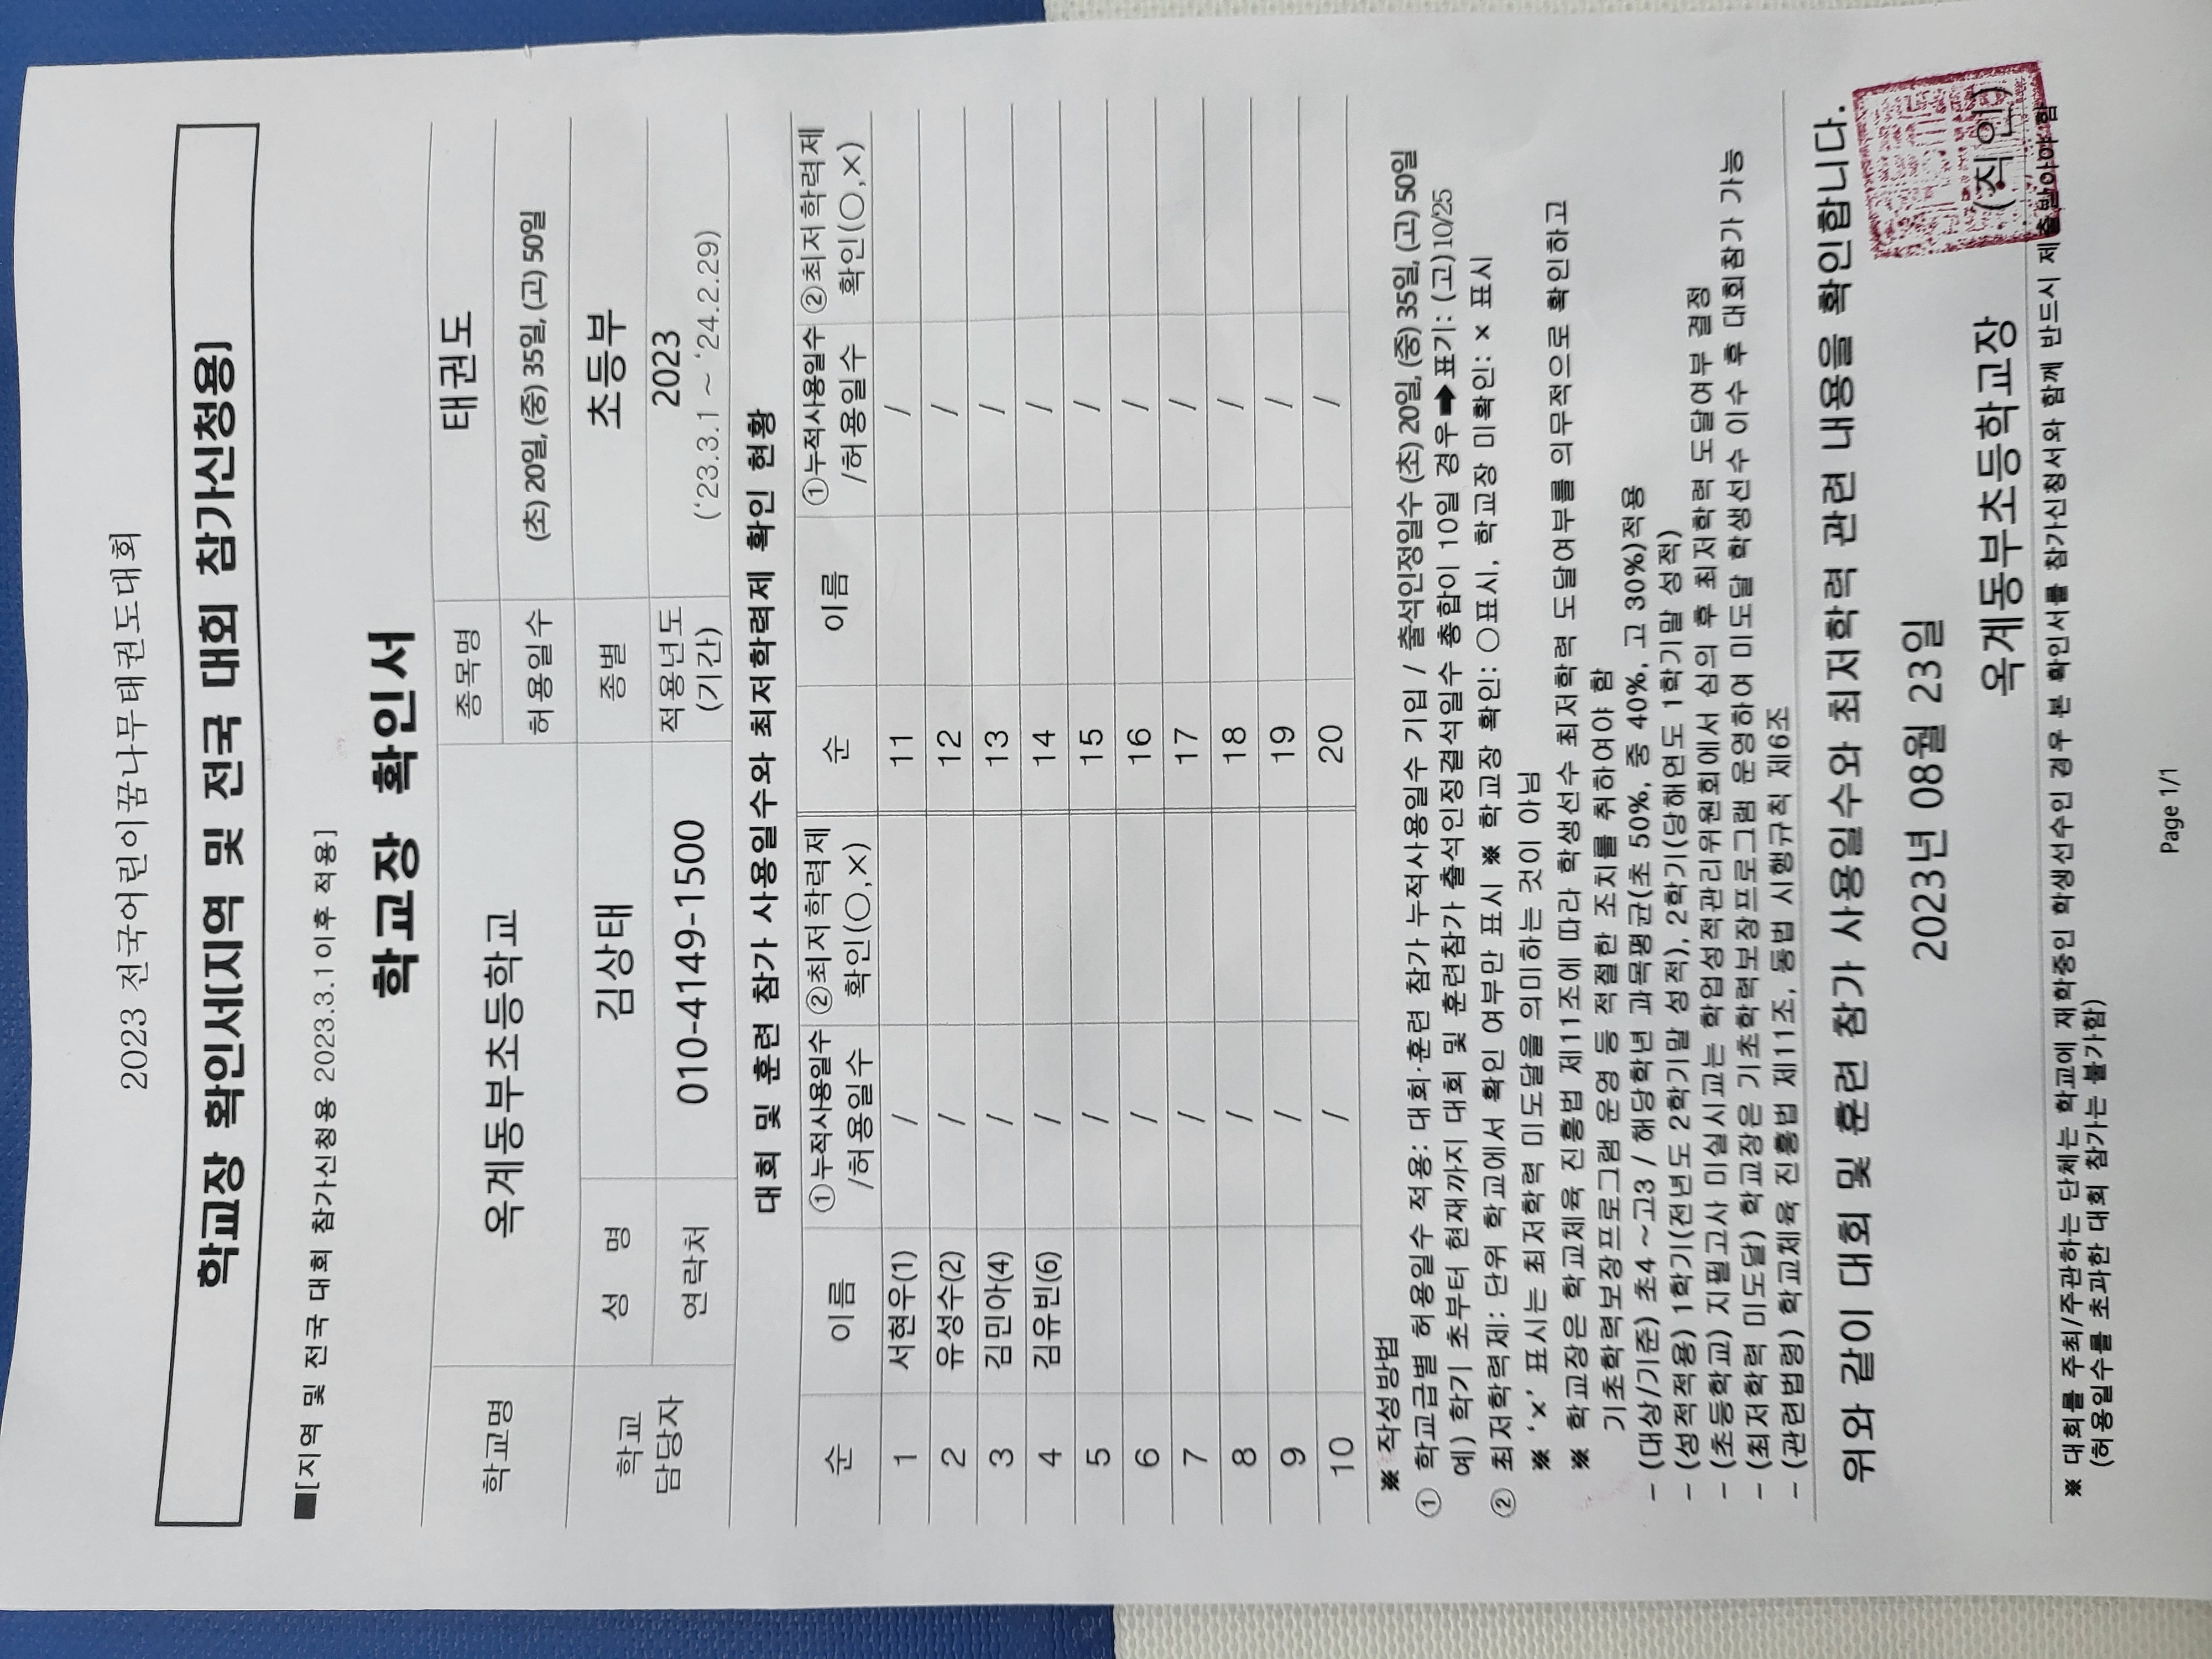 2023 전국어린이꿈나무태권도대회
학교장 확인서[지역 및 전국 대회 참가신청용]
■[지역 및 전국 대회 참가신청용 2023.3.1이후 적용]
학교장 확인서
학교명 옥계동부초등학교 종목명 태권도
허용일수 (초) 20일, (중) 35일, (고) 50일
학교 담당자 성 명 김상태 종별 초등부
연락처 010-4149-1500 적용년도 (기간) 2023 ('23.3.1 ~ '24.2.29)
대회 및 훈련 참가 사용일수와 최저학력제 확인 현황
순 이름 ①누적사용일수 /허용일수 ②최저학력제 확인(○,×) 순 이름 ①누적사용일수 /허용일수 ②최저학력제 확인(○,×)
1 서현우(1) / 11 /
2 유성수(2) / 12 /
3 김민아(4) / 13 /
4 김유빈(6) / 14 /
5 / 15 /
6 / 16 /
7 / 17 /
8 / 18 /
9 / 19 /
10 / 20 /
※ 작성방법
① 학교급별 허용일수 적용: 대회·훈련 참가 누적사용일수 기입 / 출석인정일수 (초) 20일, (중) 35일, (고) 50일
예) 학기 초부터 현재까지 대회 및 훈련참가 출석인정결석일수 총합이 10일 경우➡표기: (고) 10/25
② 최저학력제: 단위 학교에서 확인 여부만 표시 ※ 학교장 확인: ○표시, 학교장 미확인: × 표시
※ '×' 표시는 최저학력 미도달을 의미하는 것이 아님
※ 학교장은 학교체육 진흥법 제11조에 따라 학생선수 최저학력 도달여부를 의무적으로 확인하고
기초학력보장프로그램 운영 등 적절한 조치를 취하여야 함
- (대상/기준) 초4 ~고3 / 해당학년 과목평균(초 50%, 중 40%, 고 30%)적용
- (성적적용) 1학기(전년도 2학기말 성적), 2학기(당해연도 1학기말 성적)
- (초등학교) 지필고사 미실시교는 학업성적관리위원회에서 심의 후 최저학력 도달여부 결정
- (최저학력 미도달) 학교장은 기초학력보장프로그램 운영하여 미도달 학생선수 이수 후 대회참가 가능
- (관련법령) 학교체육 진흥법 제11조, 동법 시행규칙 제6조
위와 같이 대회 및 훈련 참가 사용일수와 최저학력 관련 내용을 확인합니다.
2023년 08월 23일
옥계동부초등학교장 (직인)
※ 대회를 주최/주관하는 단체는 학교에 재학중인 학생선수인 경우 본 확인서를 참가신청서와 함께 반드시 제출받아야 함
(허용일수를 초과한 대회 참가는 불가함)
Page 1/1